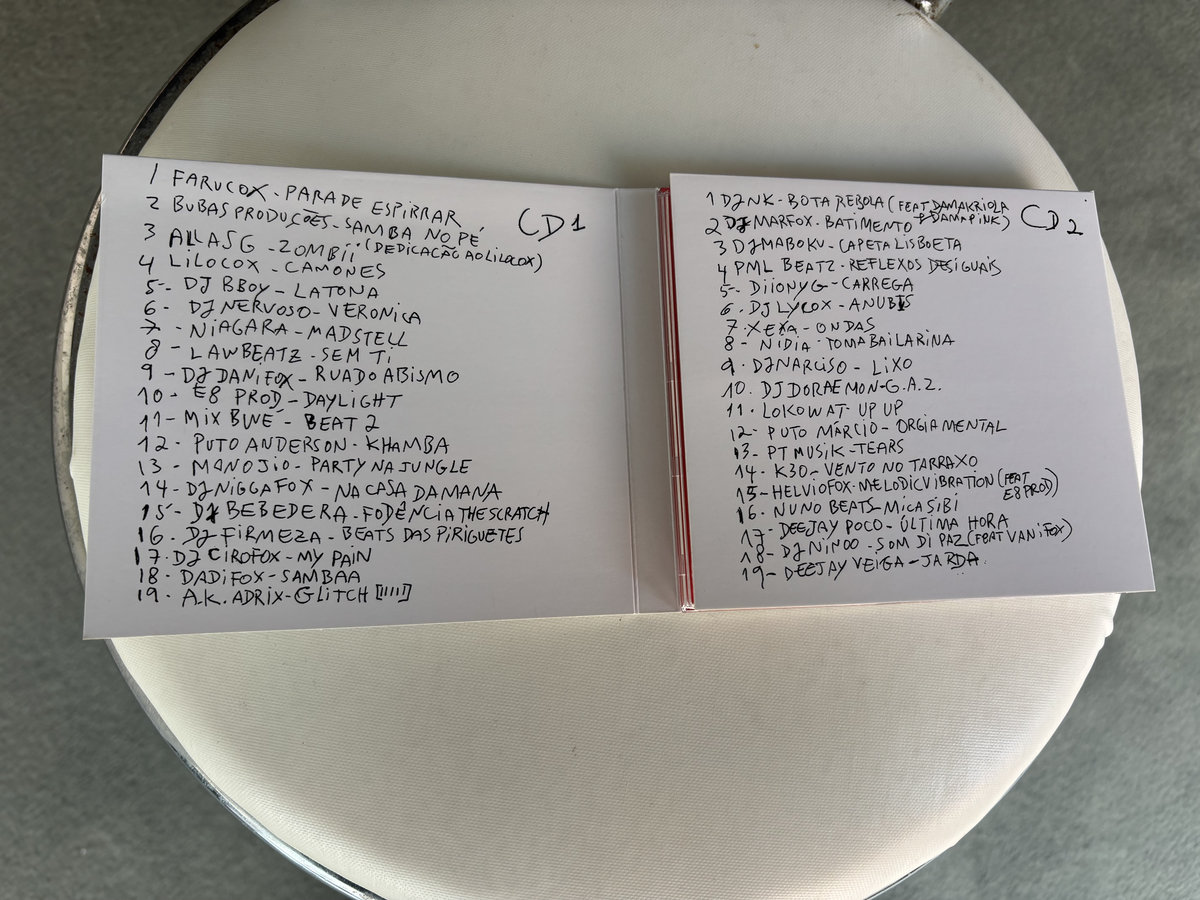 CD1
1 FARUCOX - PARA DE ESPIRRAR
2 BUBAS PRODUÇÕES - SAMBA NO PÉ
3 ALLAS G - ZOMBII (DEDICAÇÃO AO LILOCOX)
4 LILOCOX - CAMONES
5 - DJ BBOY - LATONA
6 - DJ NERVOSO - VERONICA
7 - NIAGARA - MADSTELL
8 - LAWBEATZ - SEM TI
9 - DJ DANIFOX - RUA DO ABISMO
10 - E8 PROD - DAYLIGHT
11 - MIX BWÉ - BEAT 2
12 - PUTO ANDERSON - KHAMBA
13 - MANOJIO - PARTY NA JUNGLE
14 - DJ NIGGA FOX - NA CASA DA MANA
15 - DJ BEBEDERA - FODÊNCIA THE SCRATCH
16 - DJ FIRMEZA - BEATS DAS PIRIGUETES
17 - DJ CIROFOX - MY PAIN
18 - DADIFOX - SAMBAA
19 - A.K. ADRIX - GLITCH [11111]
CD2
1 DJ NK - BOTA REBOLA (FEAT DAMA KRIOLA
+ DAMA PINK)
2 DJ MARFOX - BATIMENTO
3 DJ MABOKU - CAPETA LISBOETA
4 PML BEATZ - REFLEXOS DESIGUAIS
5 - DIIONY G - CARREGA
6 - DJ LYCOX - ANUBIS
7 - XEXA - ONDAS
8 - NÍDIA - TOMA BAILARINA
9 - DJ NARCISO - LIXO
10. DJ DORAEMON - G.A.Z.
11 - LOKOWAT - UP UP
12 - PUTO MÁRCIO - ORGIA MENTAL
13 - PT MUSIK - TEARS
14 - K30 - VENTO NO TARRAXO
15 - HELVIOFOX - MELODIC VIBRATION (FEAT
E8 PROD)
16 - NUNO BEATS - MICASIBI
17 - DEEJAY POCO - ÚLTIMA HORA
18 - DJ NINOO - SOM DI PAZ (FEAT VANIFOX)
19 - DEEJAY VEIGA - JARDA